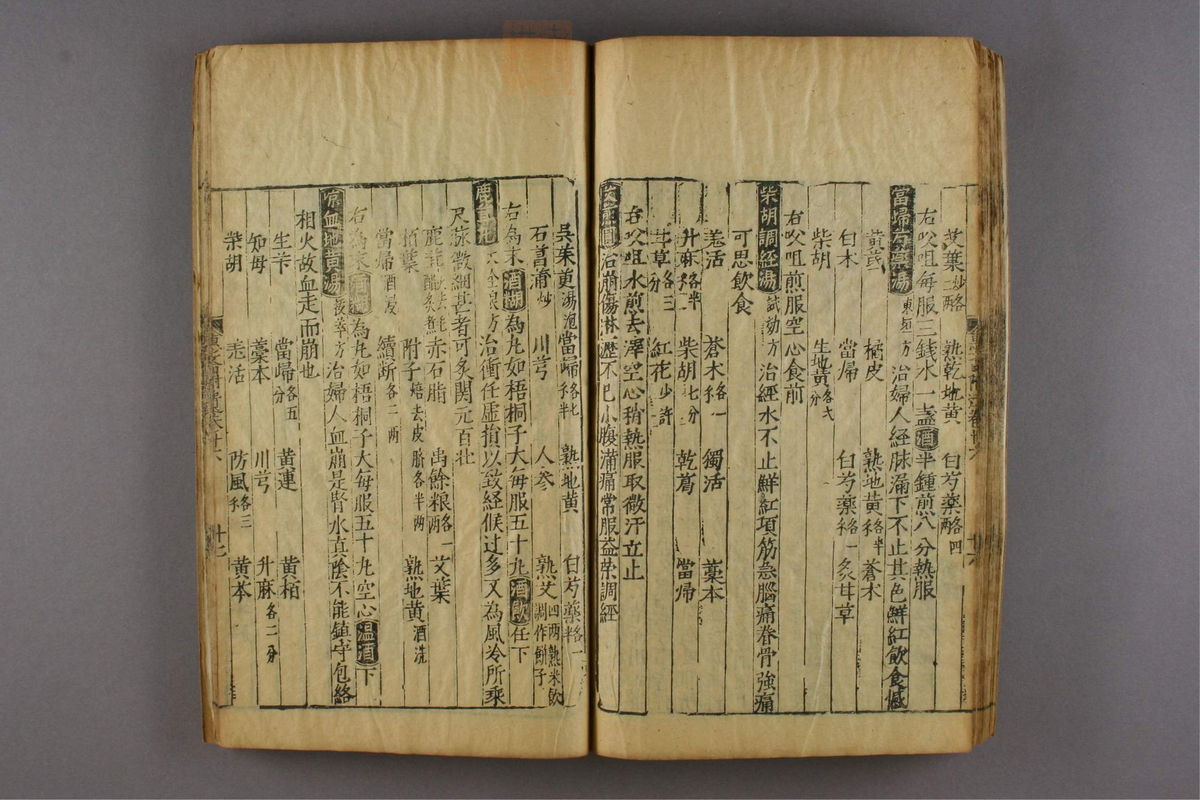 艾葉炒二錢 熟乾地黃 白芍藥各四錢
右㕮咀每服三錢水一盞酒半鍾煎八分熱服
當歸芍藥湯東垣方治婦人經脉漏下不止其色鮮紅飲食減
黃芪 橘皮 熟地黃各半錢 蒼术
白术 當歸 白芍藥各一錢 炙甘草
柴胡 生地黃各七分
右㕮咀煎服空心食前
柴胡調經湯試効方治經水不止鮮紅項筋急腦痛脊骨強痛
可思飲食
羌活 蒼木各一錢 獨活 藁本
升麻各半錢 柴胡七分 乾葛 當歸
甘草各三分 紅花少許
右㕮咀水煎去滓空心稍熱服取微汗立止
艾煎圓治崩傷淋瀝不已小腹滿痛常服益榮調經
吳茱萸湯泡 當歸各七錢半 熟地黃 白芍藥各一錢半
石菖蒲炒 川芎 人參 熟艾四兩熟米飲調作餅子
右為末酒糊為丸如梧桐子大每服五十丸酒飲任下
鹿茸丸 治衝任虛損以致經候过多又為風冷所乘
尺脉微細甚者可炙関元百壯
鹿茸 赤石脂 禹餘粮各一兩 艾葉
栢葉 附子炮去皮臍各半兩 熟地黃酒洗
當歸酒浸 續断各二兩
右為末酒糊為丸如梧桐子大每服五十丸空心温酒下
凉血地黃湯 治婦人血崩是腎水真陰不能鎮守包絡
相火故血走而崩也
生芐 當歸各五分 黃連 黃栢
知母 藁本 川芎 升麻各二分
柴胡 羌活 防風各三 黃芩